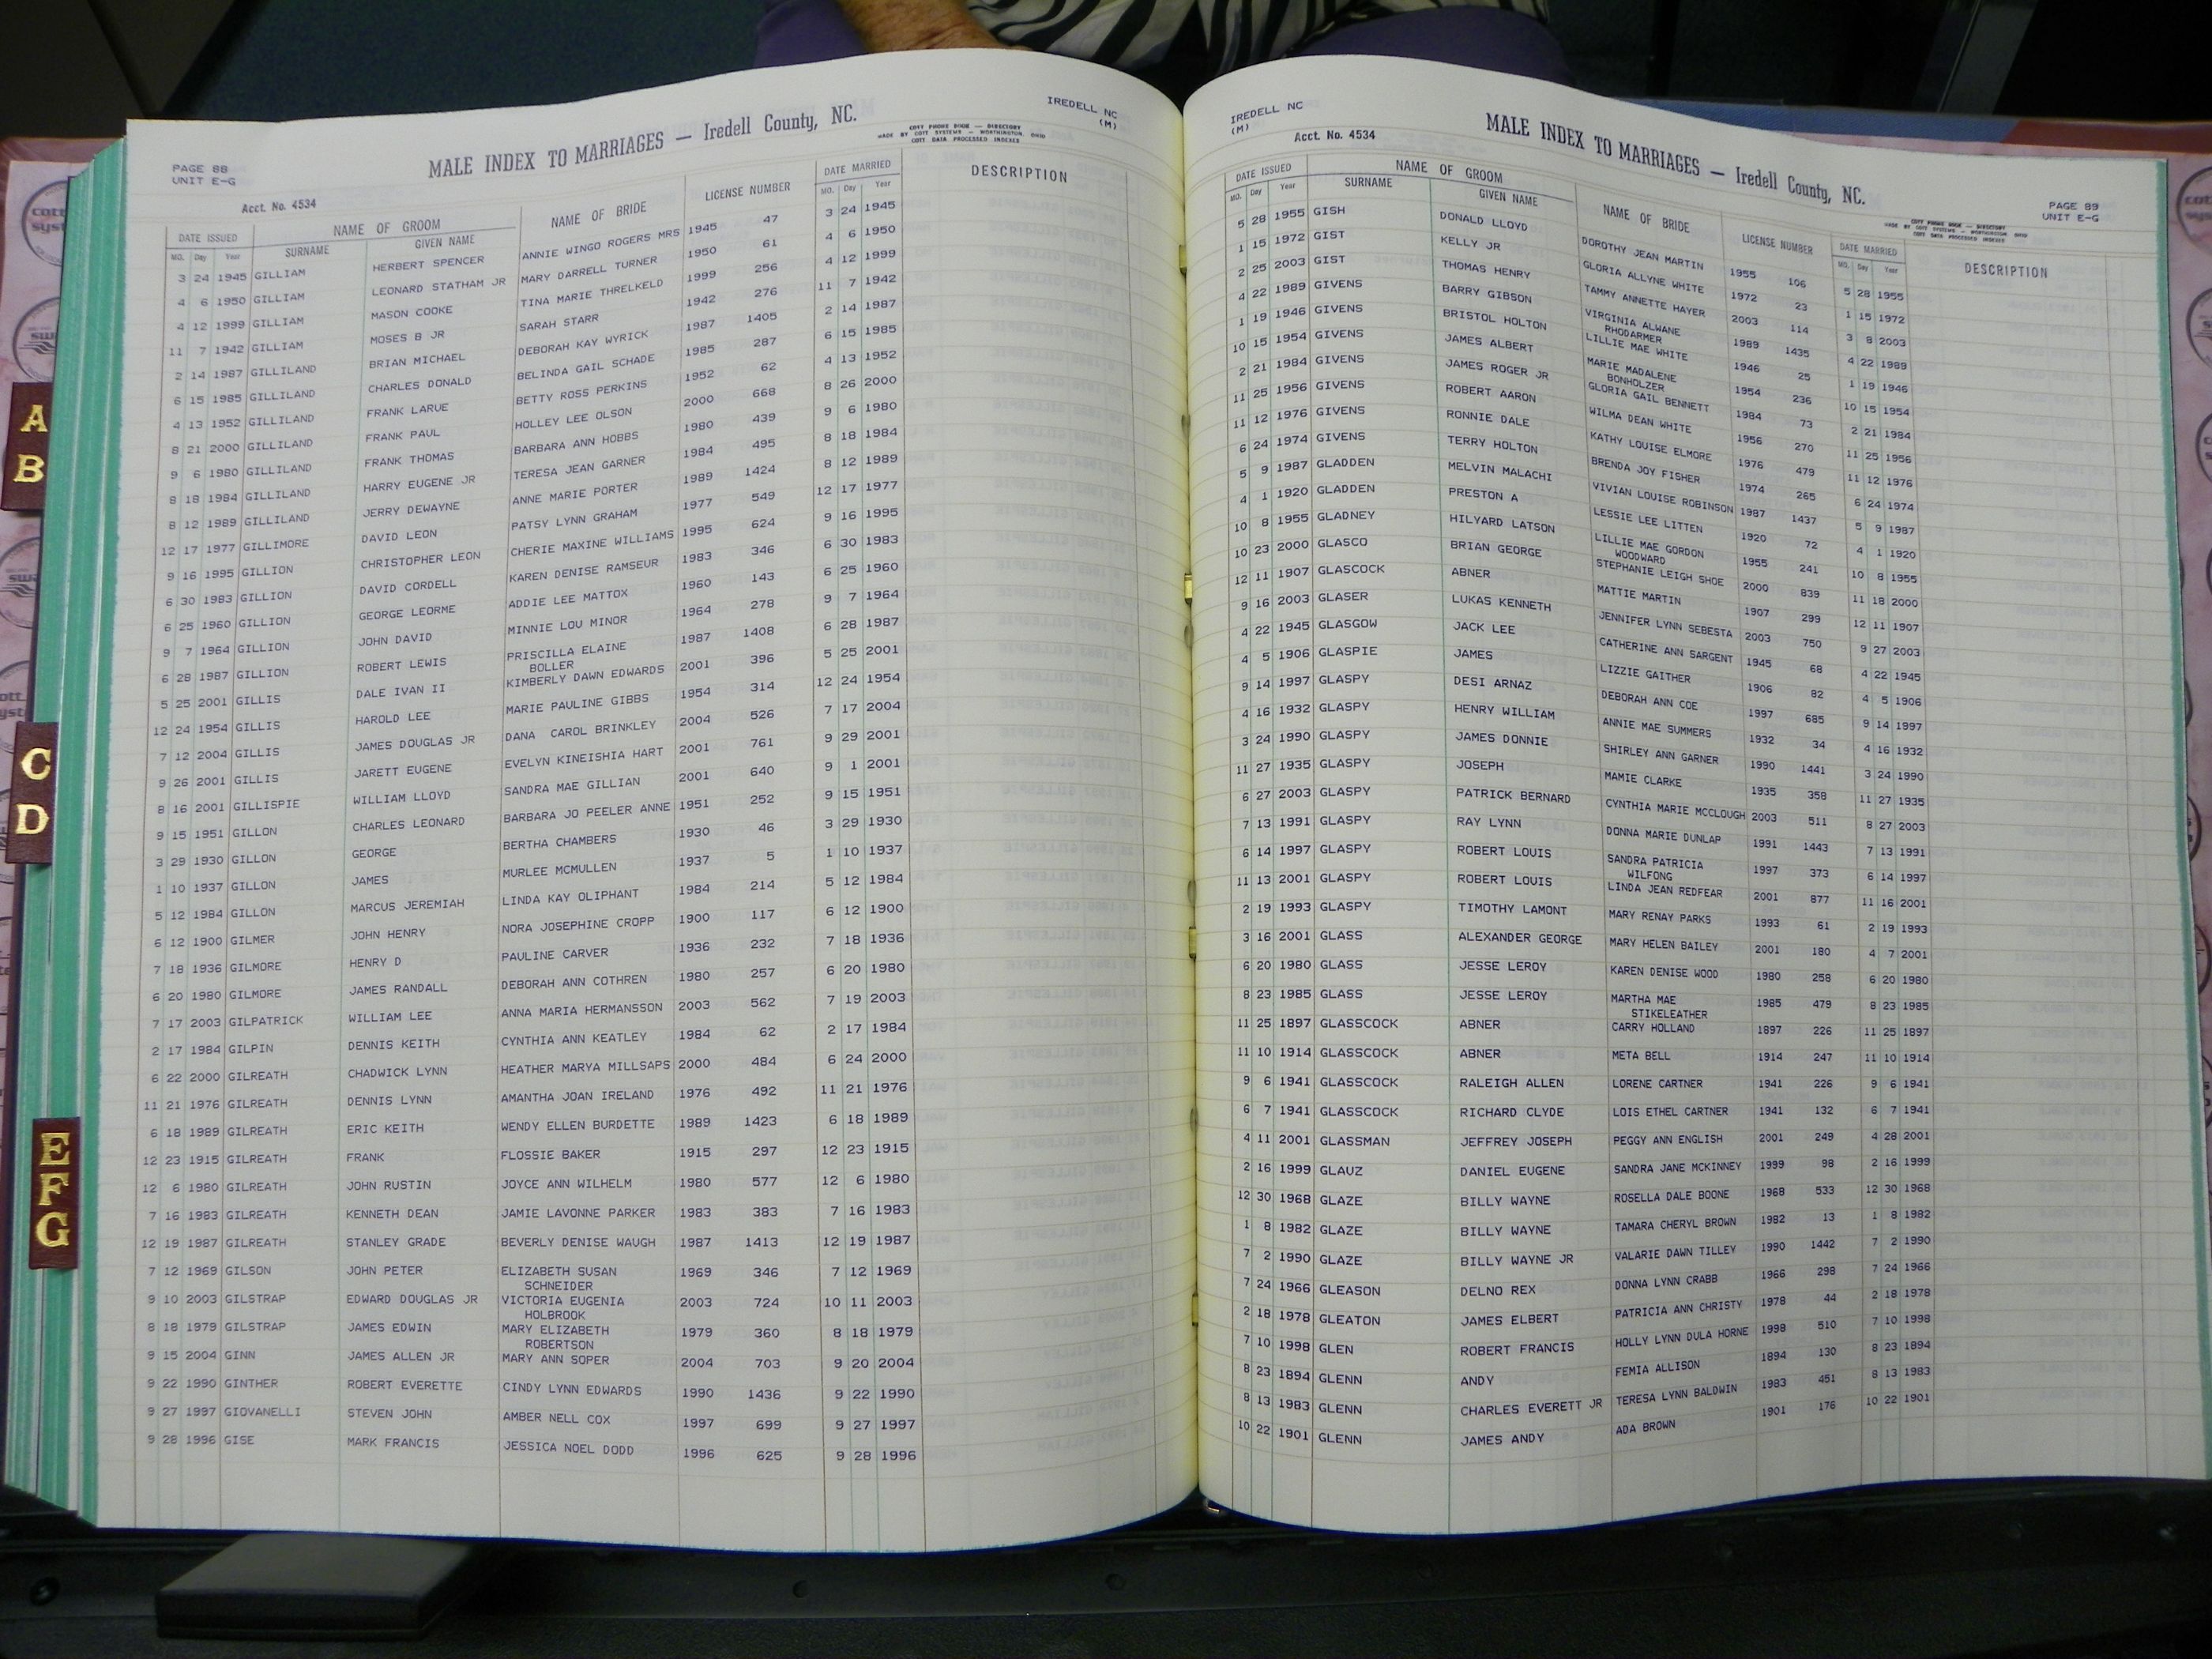 PAGE 88
UNIT E-G
Acct. No. 4534
MALE INDEX TO MARRIAGES — Iredell County, NC.
COTT PHONE BOOK — DIRECTORY
MADE BY COTT SYSTEMS — WORTHINGTON, OHIO
COTT DATA PROCESSED INDEXES
IREDELL NC
(M)
DATE ISSUED NAME OF GROOM NAME OF BRIDE LICENSE NUMBER DATE MARRIED DESCRIPTION
MO. Day Year SURNAME GIVEN NAME MO. Day Year
3 24 1945 GILLIAM HERBERT SPENCER ANNIE WINGO ROGERS MRS 1945 47 3 24 1945
4 6 1950 GILLIAM LEONARD STATHAM JR MARY DARRELL TURNER 1950 61 4 6 1950
4 12 1999 GILLIAM MASON COOKE TINA MARIE THRELKELD 1999 256 4 12 1999
11 7 1942 GILLIAM MOSES B JR SARAH STARR 1942 276 11 7 1942
2 14 1987 GILLILAND BRIAN MICHAEL DEBORAH KAY WYRICK 1987 1405 2 14 1987
6 15 1985 GILLILAND CHARLES DONALD BELINDA GAIL SCHADE 1985 287 6 15 1985
4 13 1952 GILLILAND FRANK LARUE BETTY ROSS PERKINS 1952 62 4 13 1952
8 21 2000 GILLILAND FRANK PAUL HOLLEY LEE OLSON 2000 668 8 26 2000
9 6 1980 GILLILAND FRANK THOMAS BARBARA ANN HOBBS 1980 439 9 6 1980
8 18 1984 GILLILAND HARRY EUGENE JR TERESA JEAN GARNER 1984 495 8 18 1984
8 12 1989 GILLILAND JERRY DEWAYNE ANNE MARIE PORTER 1989 1424 8 12 1989
12 17 1977 GILLIMORE DAVID LEON PATSY LYNN GRAHAM 1977 549 12 17 1977
9 16 1995 GILLION CHRISTOPHER LEON CHERIE MAXINE WILLIAMS 1995 624 9 16 1995
6 30 1983 GILLION DAVID CORDELL KAREN DENISE RAMSEUR 1983 346 6 30 1983
6 25 1960 GILLION GEORGE LEORME ADDIE LEE MATTOX 1960 143 6 25 1960
9 7 1964 GILLION JOHN DAVID MINNIE LOU MINOR 1964 278 9 7 1964
6 28 1987 GILLION ROBERT LEWIS PRISCILLA ELAINE 1987 1408 6 28 1987
BOLLER
5 25 2001 GILLIS DALE IVAN II KIMBERLY DAWN EDWARDS 2001 396 5 25 2001
12 24 1954 GILLIS HAROLD LEE MARIE PAULINE GIBBS 1954 314 12 24 1954
7 12 2004 GILLIS JAMES DOUGLAS JR DANA CAROL BRINKLEY 2004 526 7 17 2004
9 26 2001 GILLIS JARETT EUGENE EVELYN KINEISHIA HART 2001 761 9 29 2001
8 16 2001 GILLISPIE WILLIAM LLOYD SANDRA MAE GILLIAN 2001 640 9 1 2001
9 15 1951 GILLON CHARLES LEONARD BARBARA JO PEELER ANNE 1951 252 9 15 1951
3 29 1930 GILLON GEORGE BERTHA CHAMBERS 1930 46 3 29 1930
1 10 1937 GILLON JAMES MURLEE MCMULLEN 1937 5 1 10 1937
5 12 1984 GILLON MARCUS JEREMIAH LINDA KAY OLIPHANT 1984 214 5 12 1984
6 12 1900 GILMER JOHN HENRY NORA JOSEPHINE CROPP 1900 117 6 12 1900
7 18 1936 GILMORE HENRY D PAULINE CARVER 1936 232 7 18 1936
6 20 1980 GILMORE JAMES RANDALL DEBORAH ANN COTHREN 1980 257 6 20 1980
7 17 2003 GILPATRICK WILLIAM LEE ANNA MARIA HERMANSSON 2003 562 7 19 2003
2 17 1984 GILPIN DENNIS KEITH CYNTHIA ANN KEATLEY 1984 62 2 17 1984
6 22 2000 GILREATH CHADWICK LYNN HEATHER MARYA MILLSAPS 2000 484 6 24 2000
11 21 1976 GILREATH DENNIS LYNN AMANTHA JOAN IRELAND 1976 492 11 21 1976
6 18 1989 GILREATH ERIC KEITH WENDY ELLEN BURDETTE 1989 1423 6 18 1989
12 23 1915 GILREATH FRANK FLOSSIE BAKER 1915 297 12 23 1915
12 6 1980 GILREATH JOHN RUSTIN JOYCE ANN WILHELM 1980 577 12 6 1980
7 16 1983 GILREATH KENNETH DEAN JAMIE LAVONNE PARKER 1983 383 7 16 1983
12 19 1987 GILREATH STANLEY GRADE BEVERLY DENISE WAUGH 1987 1413 12 19 1987
7 12 1969 GILSON JOHN PETER ELIZABETH SUSAN 1969 346 7 12 1969
SCHNEIDER
9 10 2003 GILSTRAP EDWARD DOUGLAS JR VICTORIA EUGENIA 2003 724 10 11 2003
HOLBROOK
8 18 1979 GILSTRAP JAMES EDWIN MARY ELIZABETH 1979 360 8 18 1979
ROBERTSON
9 15 2004 GINN JAMES ALLEN JR MARY ANN SOPER 2004 703 9 20 2004
9 22 1990 GINTHER ROBERT EVERETTE CINDY LYNN EDWARDS 1990 1436 9 22 1990
9 27 1997 GIOVANELLI STEVEN JOHN AMBER NELL COX 1997 699 9 27 1997
9 28 1996 GISE MARK FRANCIS JESSICA NOEL DODD 1996 625 9 28 1996
IREDELL NC
(M)
Acct. No. 4534
MALE INDEX TO MARRIAGES — Iredell County, NC.
COTT PHONE BOOK — DIRECTORY
MADE BY COTT SYSTEMS — WORTHINGTON, OHIO
COTT DATA PROCESSED INDEXES
PAGE 89
UNIT E-G
DATE ISSUED NAME OF GROOM NAME OF BRIDE LICENSE NUMBER DATE MARRIED DESCRIPTION
MO. Day Year SURNAME GIVEN NAME MO. Day Year
5 28 1955 GISH DONALD LLOYD DOROTHY JEAN MARTIN 1955 106 5 28 1955
1 15 1972 GIST KELLY JR GLORIA ALLYNE WHITE 1972 23 1 15 1972
2 25 2003 GIST THOMAS HENRY TAMMY ANNETTE HAYER 2003 114 3 8 2003
4 22 1989 GIVENS BARRY GIBSON VIRGINIA ALWANE 1989 1435 4 22 1989
RHODARMER
1 19 1946 GIVENS BRISTOL HOLTON LILLIE MAE WHITE 1946 25 1 19 1946
10 15 1954 GIVENS JAMES ALBERT MARIE MADALENE 1954 236 10 15 1954
BONHOLZER
2 21 1984 GIVENS JAMES ROGER JR GLORIA GAIL BENNETT 1984 73 2 21 1984
11 25 1956 GIVENS ROBERT AARON WILMA DEAN WHITE 1956 270 11 25 1956
11 12 1976 GIVENS RONNIE DALE KATHY LOUISE ELMORE 1976 479 11 12 1976
6 24 1974 GIVENS TERRY HOLTON BRENDA JOY FISHER 1974 265 6 24 1974
5 9 1987 GLADDEN MELVIN MALACHI VIVIAN LOUISE ROBINSON 1987 1437 5 9 1987
4 1 1920 GLADDEN PRESTON A LESSIE LEE LITTEN 1920 72 4 1 1920
10 8 1955 GLADNEY HILYARD LATSON LILLIE MAE GORDON 1955 241 10 8 1955
WOODWARD
10 23 2000 GLASCO BRIAN GEORGE STEPHANIE LEIGH SHOE 2000 839 11 18 2000
12 11 1907 GLASCOCK ABNER MATTIE MARTIN 1907 299 12 11 1907
9 16 2003 GLASER LUKAS KENNETH JENNIFER LYNN SEBESTA 2003 750 9 27 2003
4 22 1945 GLASGOW JACK LEE CATHERINE ANN SARGENT 1945 68 4 22 1945
4 5 1906 GLASPIE JAMES LIZZIE GAITHER 1906 82 4 5 1906
9 14 1997 GLASPY DESI ARNAZ DEBORAH ANN COE 1997 685 9 14 1997
4 16 1932 GLASPY HENRY WILLIAM ANNIE MAE SUMMERS 1932 34 4 16 1932
3 24 1990 GLASPY JAMES DONNIE SHIRLEY ANN GARNER 1990 1441 3 24 1990
11 27 1935 GLASPY JOSEPH MAMIE CLARKE 1935 358 11 27 1935
6 27 2003 GLASPY PATRICK BERNARD CYNTHIA MARIE MCCLOUGH 2003 511 8 27 2003
7 13 1991 GLASPY RAY LYNN DONNA MARIE DUNLAP 1991 1443 7 13 1991
6 14 1997 GLASPY ROBERT LOUIS SANDRA PATRICIA 1997 373 6 14 1997
WILFONG
11 13 2001 GLASPY ROBERT LOUIS LINDA JEAN REDFEAR 2001 877 11 16 2001
2 19 1993 GLASPY TIMOTHY LAMONT MARY RENAY PARKS 1993 61 2 19 1993
3 16 2001 GLASS ALEXANDER GEORGE MARY HELEN BAILEY 2001 180 4 7 2001
6 20 1980 GLASS JESSE LEROY KAREN DENISE WOOD 1980 258 6 20 1980
8 23 1985 GLASS JESSE LEROY MARTHA MAE 1985 479 8 23 1985
STIKELEATHER
11 25 1897 GLASSCOCK ABNER CARRY HOLLAND 1897 226 11 25 1897
11 10 1914 GLASSCOCK ABNER META BELL 1914 247 11 10 1914
9 6 1941 GLASSCOCK RALEIGH ALLEN LORENE CARTNER 1941 226 9 6 1941
6 7 1941 GLASSCOCK RICHARD CLYDE LOIS ETHEL CARTNER 1941 132 6 7 1941
4 11 2001 GLASSMAN JEFFREY JOSEPH PEGGY ANN ENGLISH 2001 249 4 28 2001
2 16 1999 GLAUZ DANIEL EUGENE SANDRA JANE MCKINNEY 1999 98 2 16 1999
12 30 1968 GLAZE BILLY WAYNE ROSELLA DALE BOONE 1968 533 12 30 1968
1 8 1982 GLAZE BILLY WAYNE TAMARA CHERYL BROWN 1982 13 1 8 1982
7 2 1990 GLAZE BILLY WAYNE JR VALARIE DAWN TILLEY 1990 1442 7 2 1990
7 24 1966 GLEASON DELNO REX DONNA LYNN CRABB 1966 298 7 24 1966
2 18 1978 GLEATON JAMES ELBERT PATRICIA ANN CHRISTY 1978 44 2 18 1978
7 10 1998 GLEN ROBERT FRANCIS HOLLY LYNN DULA HORNE 1998 510 7 10 1998
8 23 1894 GLENN ANDY FEMIA ALLISON 1894 130 8 23 1894
8 13 1983 GLENN CHARLES EVERETT JR TERESA LYNN BALDWIN 1983 451 8 13 1983
10 22 1901 GLENN JAMES ANDY ADA BROWN 1901 176 10 22 1901
A
B
C
D
E
F
G